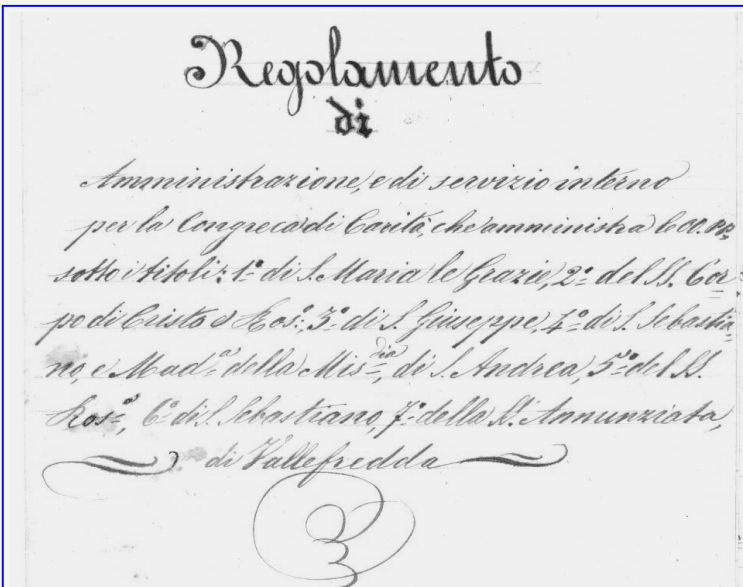 Regolamento
di
Amministrazione, e di servizio interno
per la Congreca di Carità, che amministra le OO. PP.
sotto i titoli: 1º di S. Maria le Grazie, 2º del SS. Cor
po di Cristo e Ros.º; 3º di S. Giuseppe, 4º di S. Sebastia
no, e Mad.ª della Mis.dia, di S. Andrea, 5º del SS.
Ros.º, 6º di S. Sebastiano, 7º della SS. Annunziata,
di Vallefredda